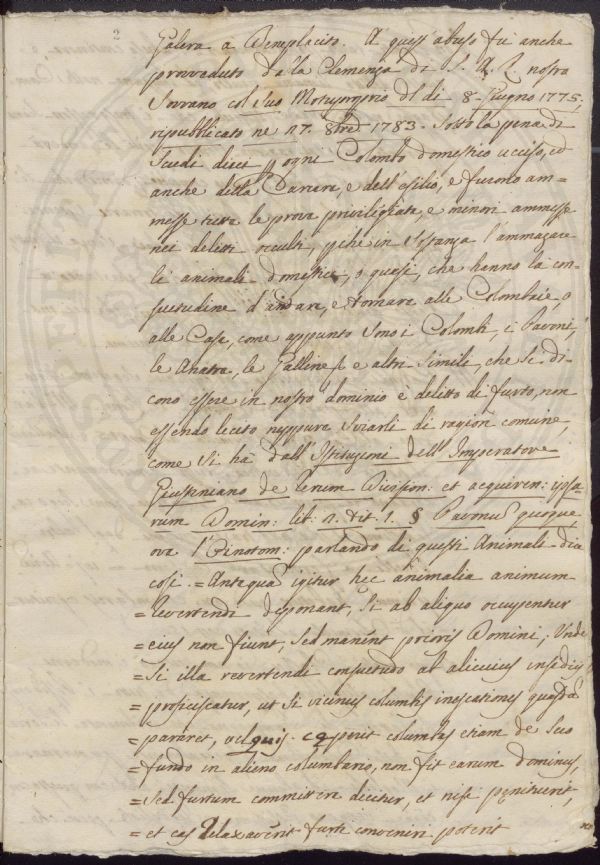 2
Galera a Beneplacito. A quest'abuso fù anche
provveduto dalla Clemenza di S. A. R. nostro
Sovrano col suo Motuproprio dl dì 8. Giugno 1775,
ripubblicato ne 17. 8bre 1783. Sotto la pena di
Scudi dieci p ogni Colombo domestico ucciso, ed
anche della Carcere, e dell'esilio, e furono am=
messe tutte le prove priviligiate, e minori ammesse
nei delitti occulti, pche in sostanza l'ammazzare
li animali domestici, o quasi, che hanno la con
suetudine d'andare, e tornare alle Colombaie, o
alle Case, come appunto sono i Colombi, i Pavoni,
le Anatre, le Galline, e altri simili, che si di
cono essere in nostro dominio è delitto di furto, non
essendo lecito neppure tirarli di ragion comune,
come si hà dall'Istituzioni dell'Imperatore
Giustiniano de Rerum Division: et acquiren: ipsa
rum Domin: lib: 2. tit. 1. § Pavonu quoque
ova l'Einotom: parlando di questi Animali dice
così = Antequa igitur hec animalia animum
= revertendi deponant, si ab aliquo occupentur
= eius non fiunt, sed manent prioris Domini; Unde
= si illa revertendi consuetudo ab alicuius insidiis
= proficiscatur, ut si vicinus columbis inescationes quasdā
= pararet, vel quis ceperit columbas etiam de suo
= fundo in alieno columbario, non fit earum dominus,
= sed furtum committere dicitur, et nisi penituerit,
= et eas relaxaverit furti conveniri poterit